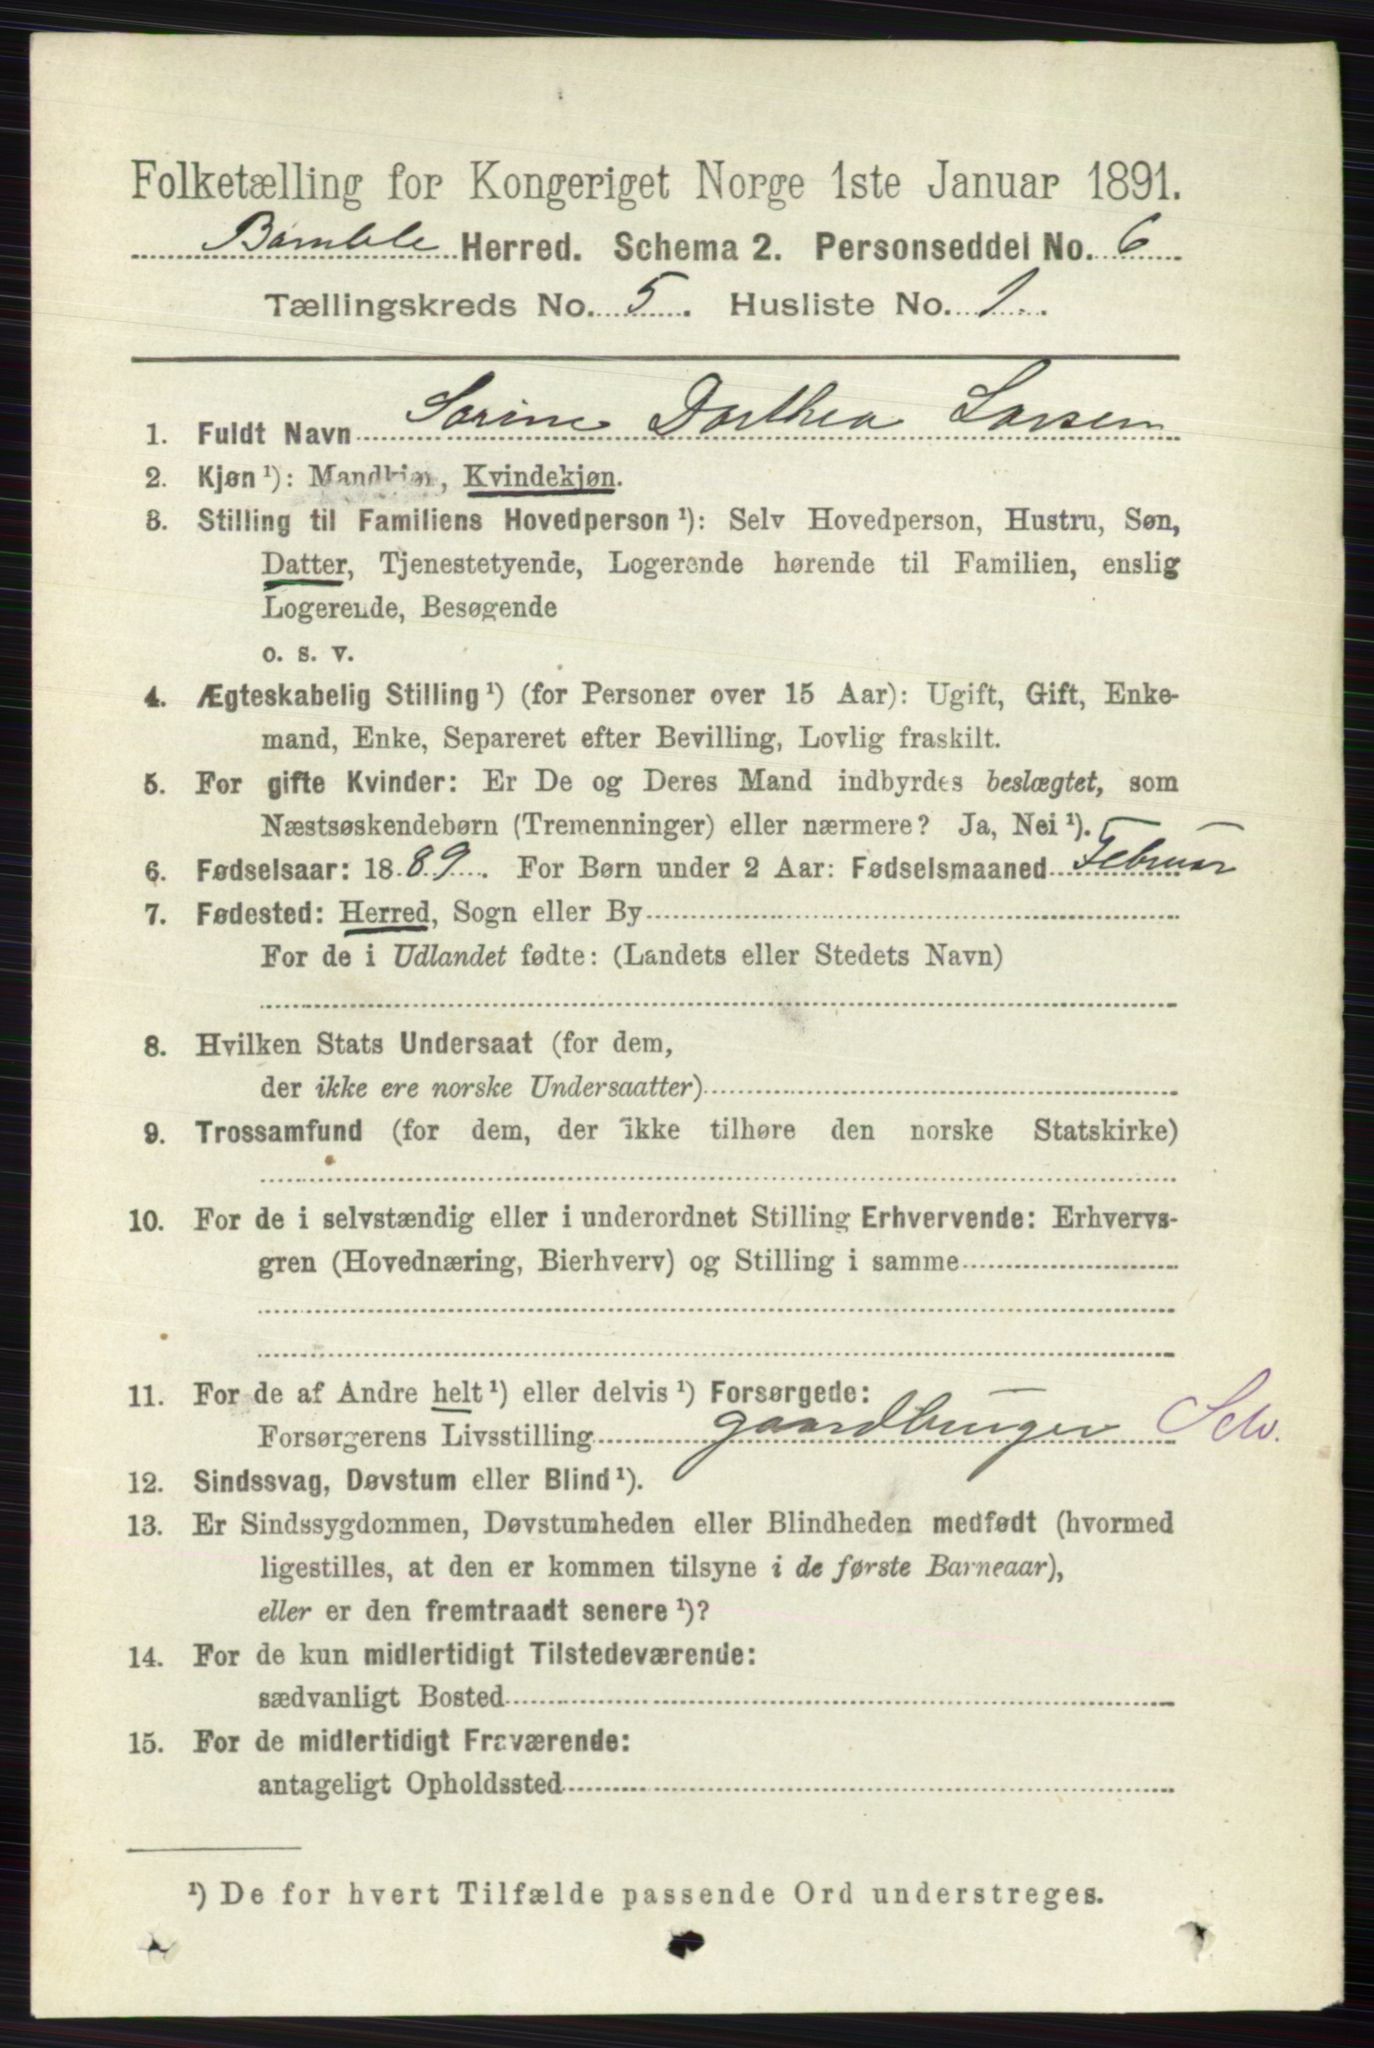 Folketælling for Kongeriget Norge 1ste Januar 1891.
Bamble Herred. Schema 2. Personseddel No. 6
Tællingskreds No. 5. Husliste No. 1.
1. Fuldt Navn Sorine Dorthea Larsen
2. Kjøn ¹): Mandkjøn, Kvindekjøn.
3. Stilling til Familiens Hovedperson ¹): Selv Hovedperson, Hustru, Søn,
Datter, Tjenestetyende, Logerende hørende til Familien, enslig
Logerende, Besøgende
o. s. v.
4. Ægteskabelig Stilling ¹) (for Personer over 15 Aar): Ugift, Gift, Enke-
mand, Enke, Separeret efter Bevilling, Lovlig fraskilt.
5. For gifte Kvinder: Er De og Deres Mand indbyrdes beslægtet, som
Næstsøskendebørn (Tremenninger) eller nærmere? Ja, Nei ¹).
6. Fødselsaar: 1889. For Børn under 2 Aar: Fødselsmaaned Februar
7. Fødested: Herred, Sogn eller By
For de i Udlandet fødte: (Landets eller Stedets Navn)
8. Hvilken Stats Undersaat (for dem,
der ikke ere norske Undersaatter)
9. Trossamfund (for dem, der ikke tilhøre den norske Statskirke)
10. For de i selvstændig eller i underordnet Stilling Erhvervende: Erhvervs-
gren (Hovednæring, Bierhverv) og Stilling i samme
11. For de af Andre helt ¹) eller delvis ¹) Forsørgede:
Forsørgerens Livsstilling gaardbruger Selv.
12. Sindssvag, Døvstum eller Blind ¹).
13. Er Sindssygdommen, Døvstumheden eller Blindheden medfødt (hvormed
ligestilles, at den er kommen tilsyne i de første Barneaar),
eller er den fremtraadt senere ¹)?
14. For de kun midlertidigt Tilstedeværende:
sædvanligt Bosted
15. For de midlertidigt Fraværende:
antageligt Opholdssted
¹) De for hvert Tilfælde passende Ord understreges.